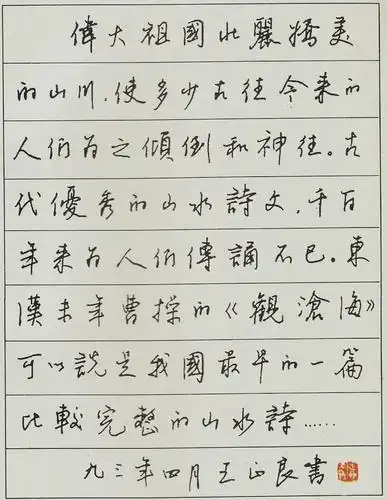 偉大祖國壯麗嬌美
的山川,使多少古往今來的
人们為之傾倒和神往。古
代優秀的山水詩文,千百
年来為人们傳誦不已。東
漢末年曹操的《觀滄海》
可以説是我國最早的一篇
比較完整的山水詩……
九三年四月王正良書